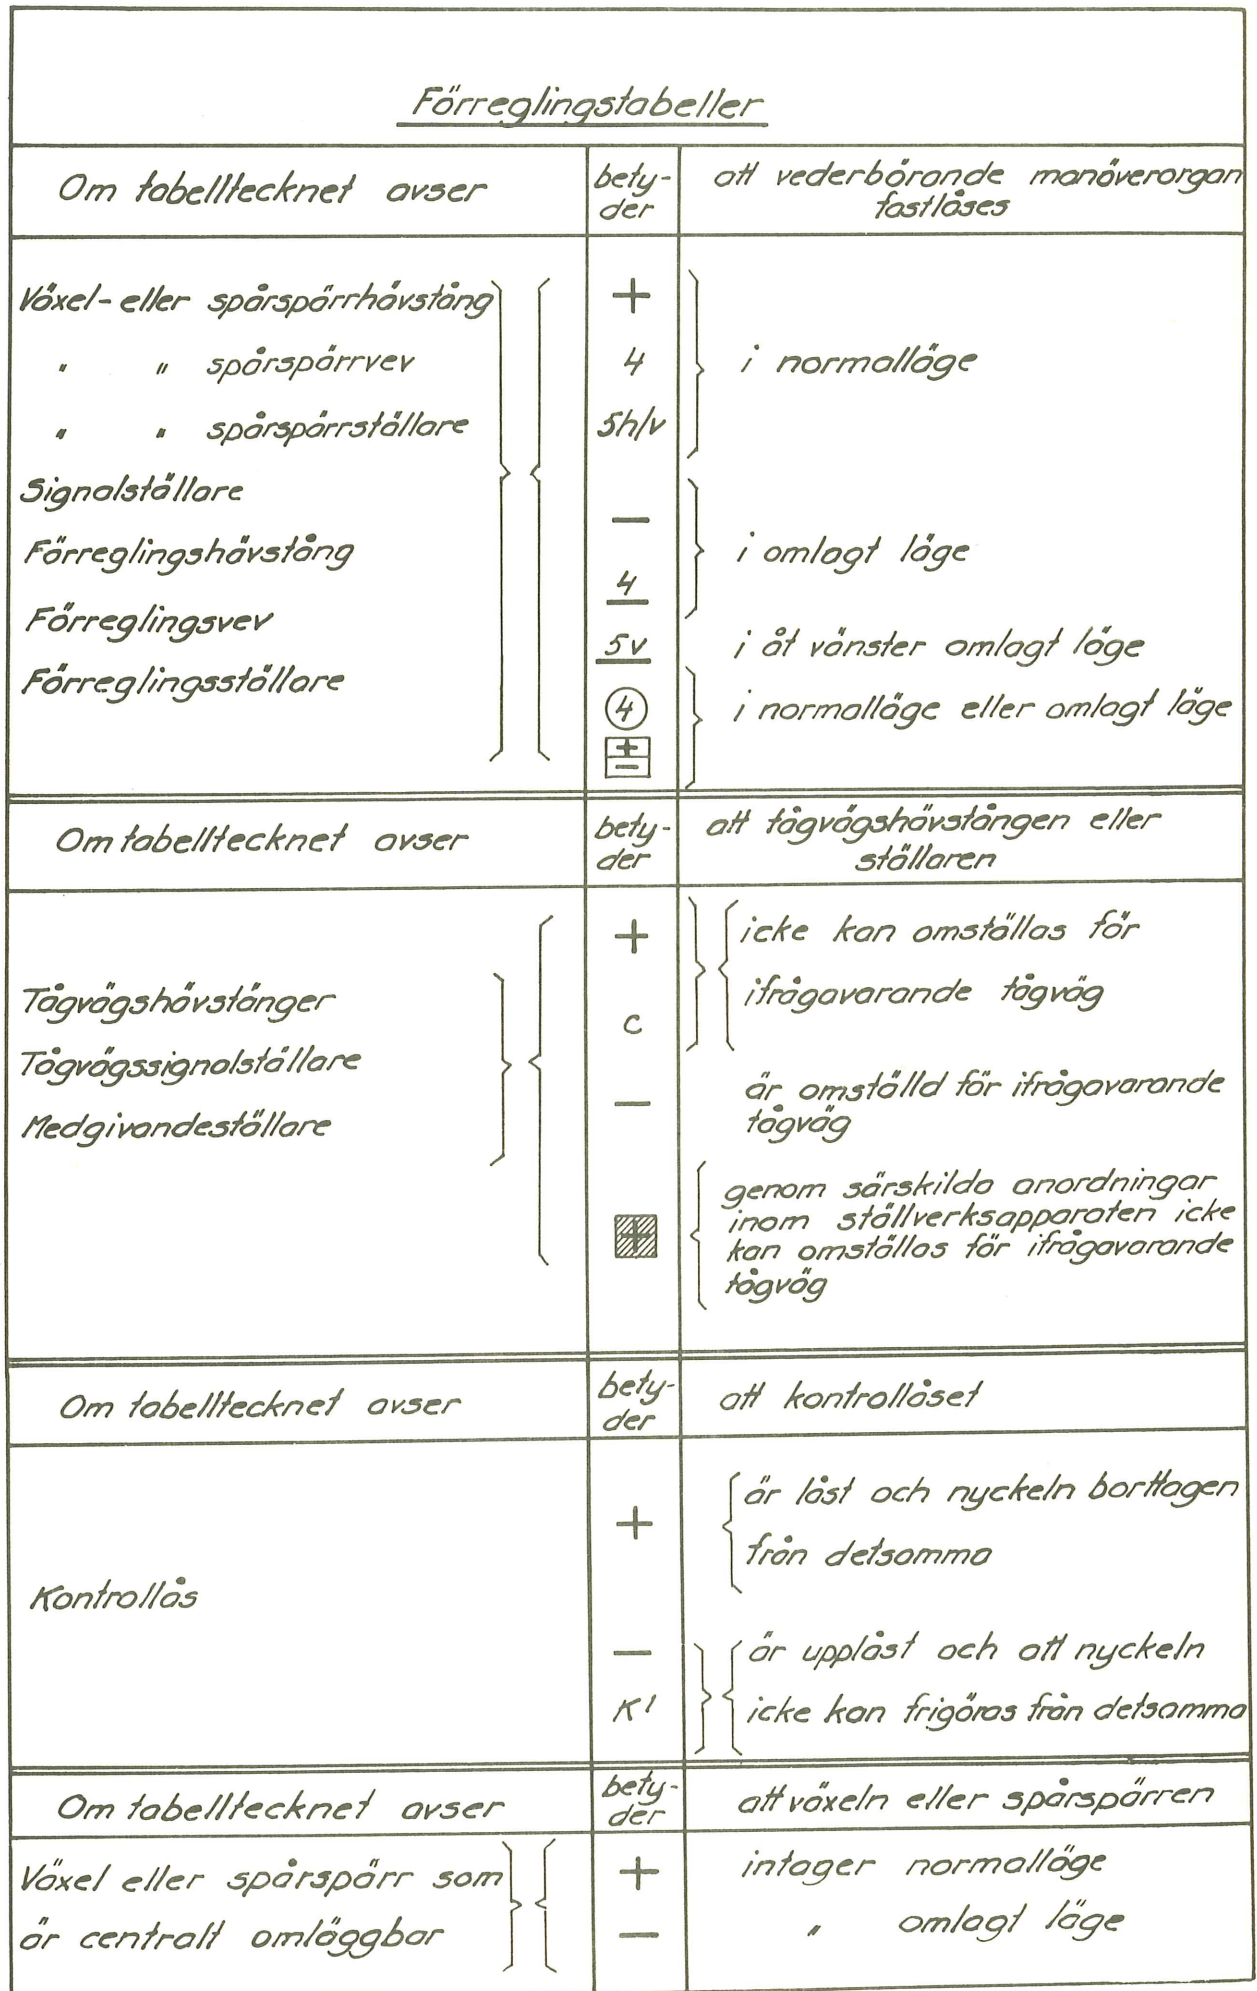 Förreglingstabeller
Om tabelltecknet avser
bety-
der
att vederbörande manöverorgan
fastlåses
Växel- eller spårspärrhävstång
" " spårspärrvev
" " spårspärrställare
Signalställare
Förreglingshävstång
Förreglingsvev
Förreglingsställare
+
4
5h/v
—
4
5v
4
+
—
i normalläge
i omlagt läge
i åt vänster omlagt läge
i normalläge eller omlagt läge
Om tabelltecknet avser
bety-
der
att tågvägshävstången eller
ställaren
Tågvägshävstänger
Tågvägssignalställare
Medgivandeställare
+
c
—
+
icke kan omställas för
ifrågavarande tågväg
är omställd för ifrågavarande
tågväg
genom särskilda anordningar
inom ställverksapparaten icke
kan omställas för ifrågavarande
tågväg
Om tabelltecknet avser
bety-
der
att kontrollåset
Kontrollås
+
—
K'
är låst och nyckeln borttagen
från detsamma
är upplåst och att nyckeln
icke kan frigöras från detsamma
Om tabelltecknet avser
bety-
der
att växeln eller spårspärren
Växel eller spårspärr som
är centralt omläggbar
+
—
intager normalläge
" omlagt läge